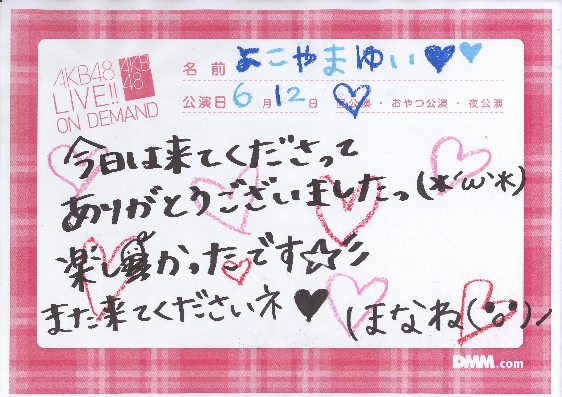 AKB48
LIVE!!
ON DEMAND
AKB
48
名前 よこやまゆい♥♥
公演日 6月12日 ♡公演・おやつ公演・夜公演
今日は来てくださって
ありがとうございましたっ(*´ω`*)
楽しかったです☆彡
また来てくださいネ♥ ほなね(^o^)ノ
DMM.com